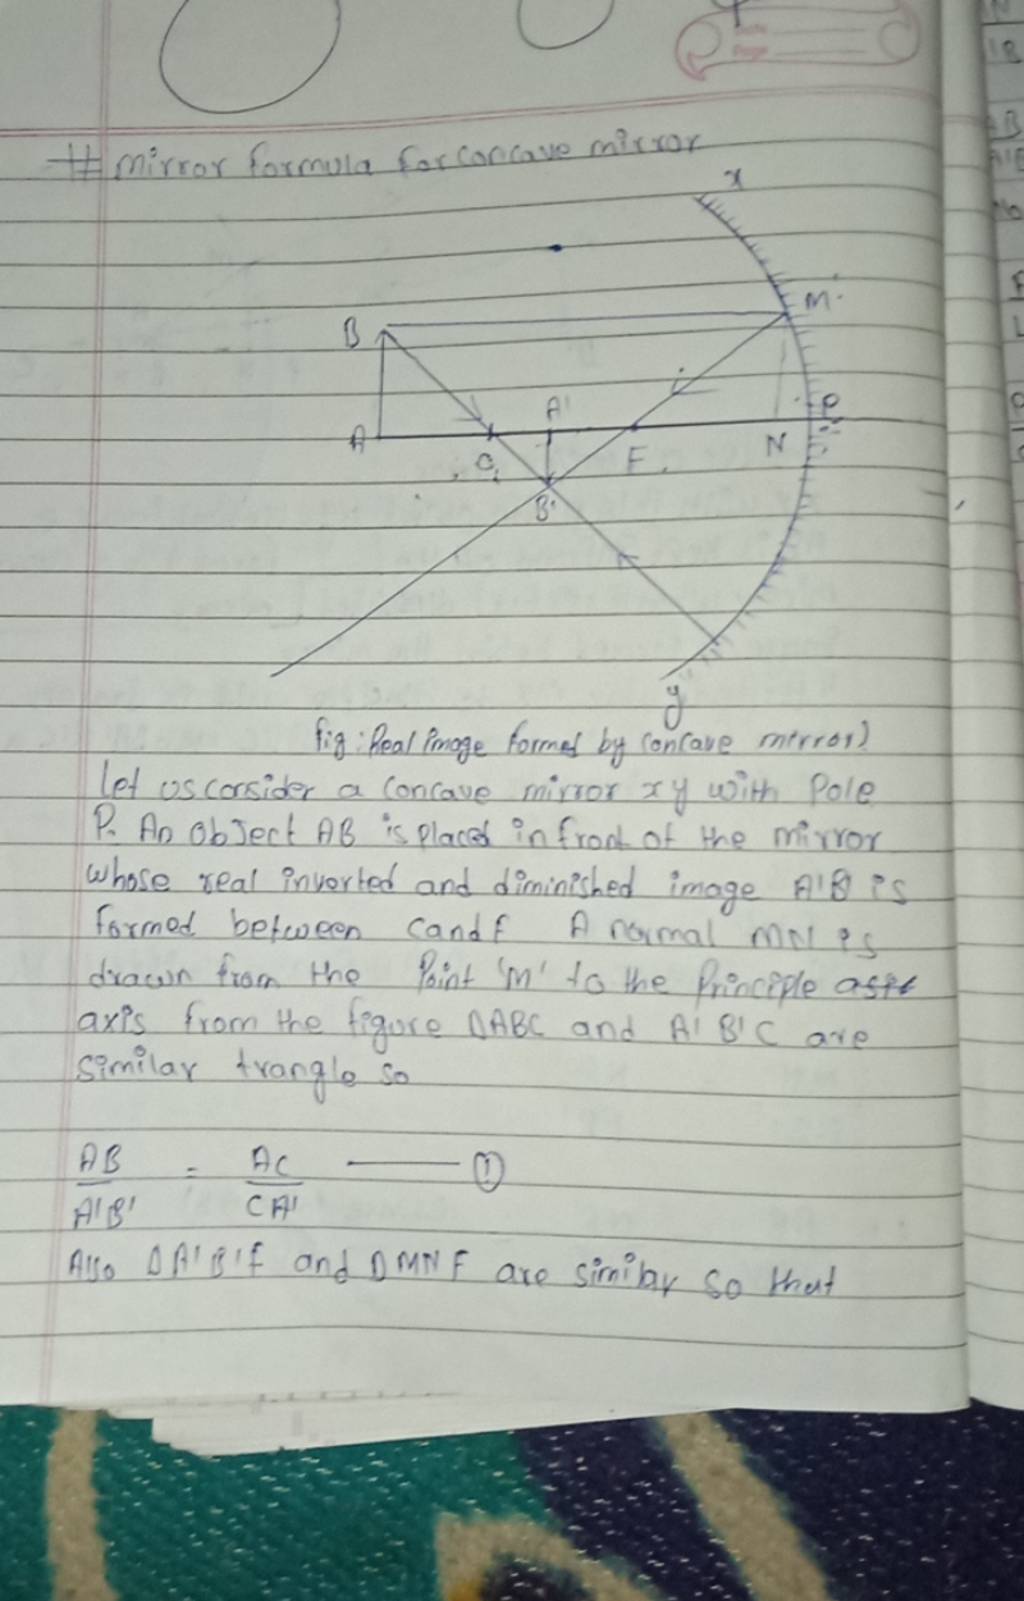 Page
# mirror formula for concave mirror
x
M
B
A'
P
A
C
F
N
B'
y
fig: Real image formed by concave mirror)
Let us consider a concave mirror xy with Pole
P. An object AB is placed in front of the mirror
whose real inverted and diminished image A'B is
formed between C and F A normal MN is
drawn from the Point 'M' to the Principle
axis from the figure ΔABC and A'B'C are
similar trangle so
AB/A'B' = AC/CA' —— ①
Also ΔA'B'F and ΔMNF are similar so that